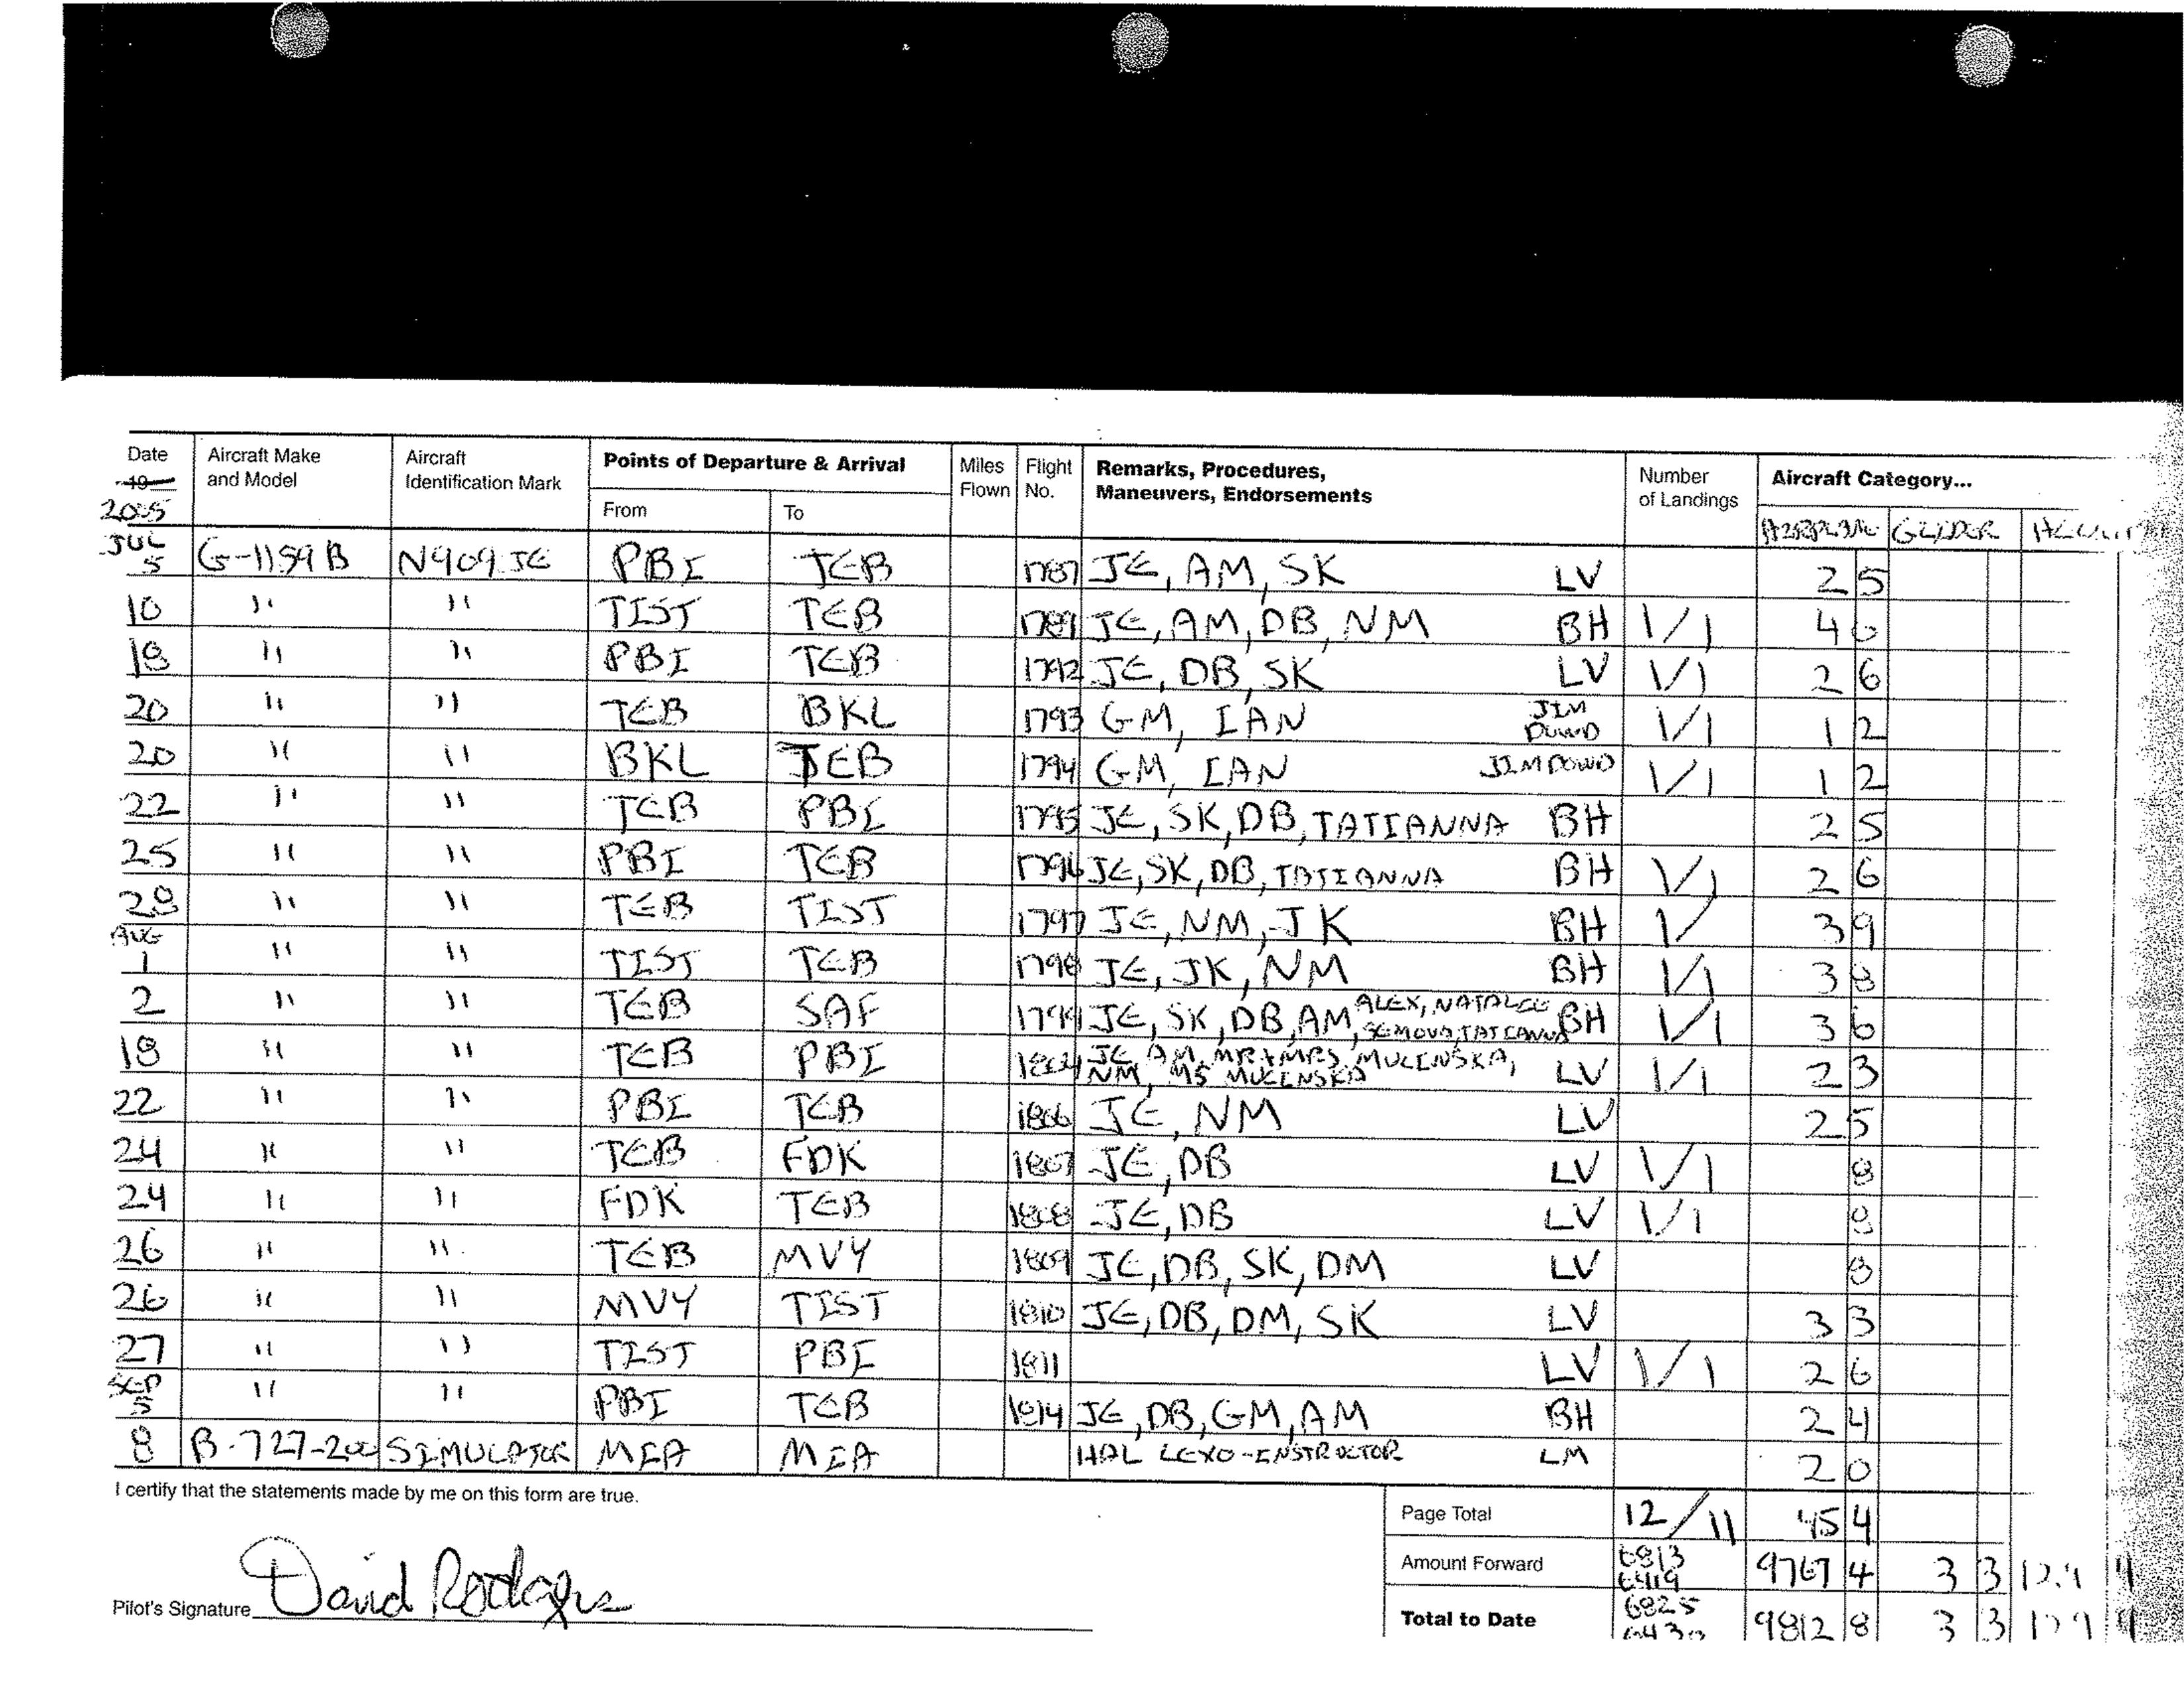 Date Aircraft Make Aircraft Points of Departure & Arrival Miles Flight Remarks, Procedures, Number Aircraft Category...
19 and Model Identification Mark Flown No. Maneuvers, Endorsements of Landings
2005 From To AIRPLANE GLIDER
JUL
5 G-1159B N909JE PBI TEB 1787 JE, AM, SK LV 2 5
10 " " TIST TEB 1789 JE, AM, DB, NM BH 1/1 4 0
18 " " PBI TEB 1792 JE, DB, SK LV 1/1 2 6
20 " " TEB BKL 1793 GM, IAN JIM DOWD 1/1 1 2
20 " " BKL TEB 1794 GM, IAN JIM DOWD 1/1 1 2
22 " " TEB PBI 1795 JE, SK, DB, TATIANNA BH 2 5
25 " " PBI TEB 1796 JE, SK, DB, TATIANNA BH 1/1 2 6
28 " " TEB TIST 1797 JE, NM, JK BH 1/ 3 9
AUG
1 " " TIST TEB 1798 JE, JK, NM BH 1/1 3 8
2 " " TEB SAF 1799 JE, SK, DB, AM, ALEX, NATALEE SEMOVA, TATIANNA BH 1/1 3 6
18 " " TEB PBI 1804 JE, AM, MR+MRS MUCINSKA, NM, MS MUCINSKA LV 1/1 2 3
22 " " PBI TEB 1806 JE, NM LV 2 5
24 " " TEB FDK 1807 JE, DB LV 1/1 8
24 " " FDK TEB 1808 JE, DB LV 1/1 8
26 " " TEB MVY 1809 JE, DB, SK, DM LV 8
26 " " MVY TIST 1810 JE, DB, DM, SK LV 3 3
27 " " TIST PBI 1811 LV 1/1 2 6
SEP
5 " " PBI TEB 1814 JE, DB, GM, AM BH 2 4
8 B-727-200 SIMULATOR MIA MIA HAL LEXO-INSTRUCTOR LM 2 0
I certify that the statements made by me on this form are true.
Page Total 12/11 45 4
Amount Forward 6813 6419 9767 4 3 3
Pilot's Signature David Rodgers
Total to Date 6825 6430 9812 8 3 3